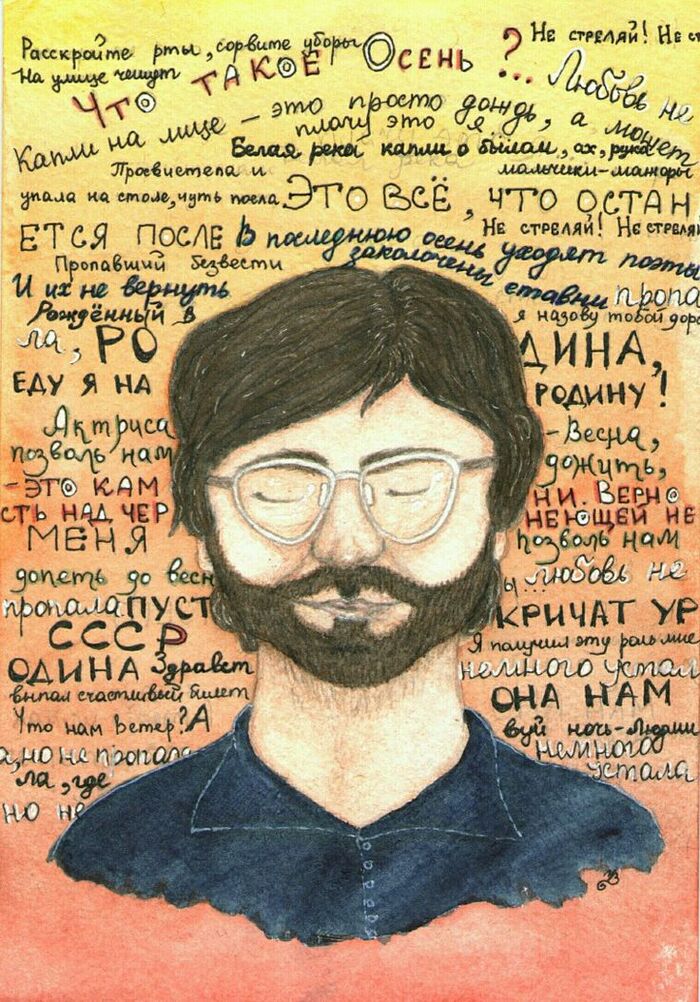 Расскройте рты, сорвите уборы Не стреляй! Не ст
На улице чешут
Что такое Осень ?...
Любовь не
Капли на лице – это просто дождь, а может
плачу это я...
Белая река капли о былом, ах, рука
Просвистела и мальчики-мажоры
упала на столе, чуть посла Это всё, что остан
Не стреляй! Не стреляй
ется после В последнюю осень уходят поэты
Пропавший безвести заколочены ставни пропа
И их не вернуть
Рождённый в я назову тобой доро
ла, Ро дина,
еду я на родину!
Актриса -Весна,
позволь нам дожить,
- это кам ни. Верно
сть над чер неющей не
меня позволь нам
допеть до весн ы... любовь не
пропала пуст кричат ур
СССР Я получил эту роль мне
одина Здравст немного устал
выпал счастливый билет она нам
Что нам ветер? А вуй ночь-Людми
а, но не пропала немного
ла, где устала
но не